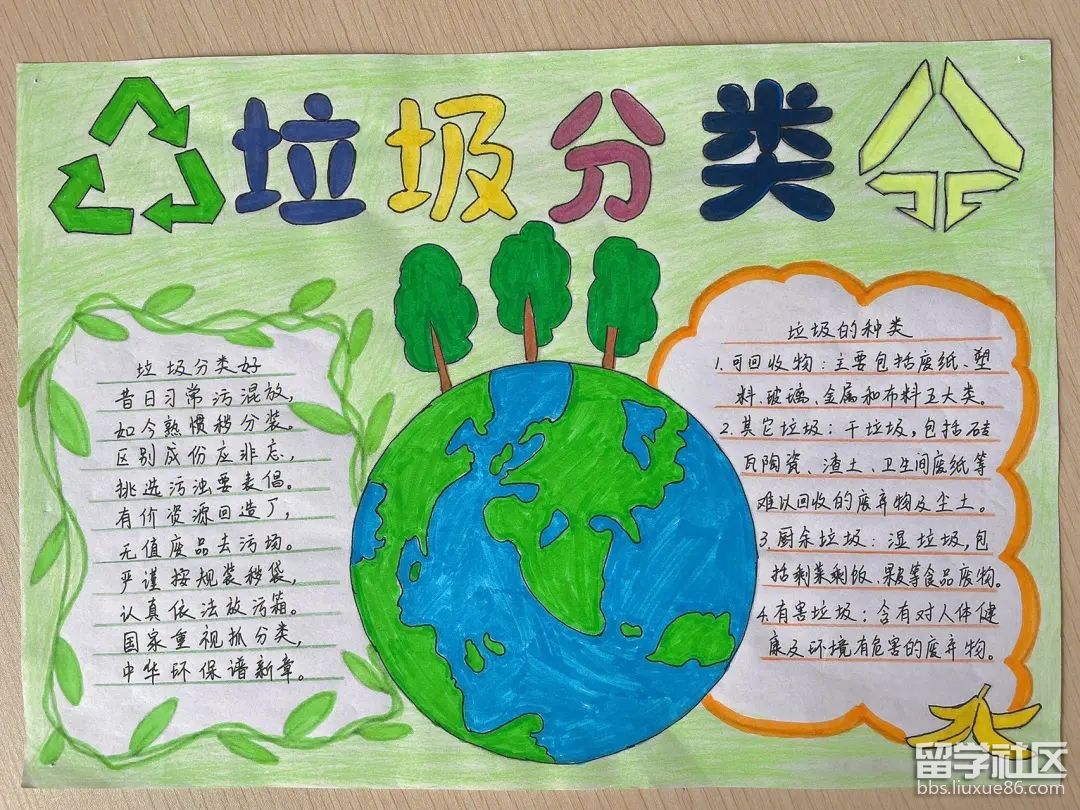 垃圾分类
垃圾分类好
昔日习常污混放,
如今熟惯秽分装。
区别成份应非忘,
挑选污浊要表倡。
有价资源回造厂,
无值废品去污场。
严谨按规装秽袋,
认真依法放污箱。
国家重视抓分类,
中华环保谱新章。
垃圾的种类
1.可回收物:主要包括废纸、塑
料、玻璃、金属和布料五大类。
2.其它垃圾:干垃圾,包括砖
瓦陶瓷、渣土、卫生间废纸等
难以回收的废弃物及尘土。
3厨余垃圾:湿垃圾,包
括剩菜剩饭、果皮等食品废物。
4.有害垃圾:含有对人体健
康及环境有危害的废弃物。
留学社区
bbs.liuxue86.com